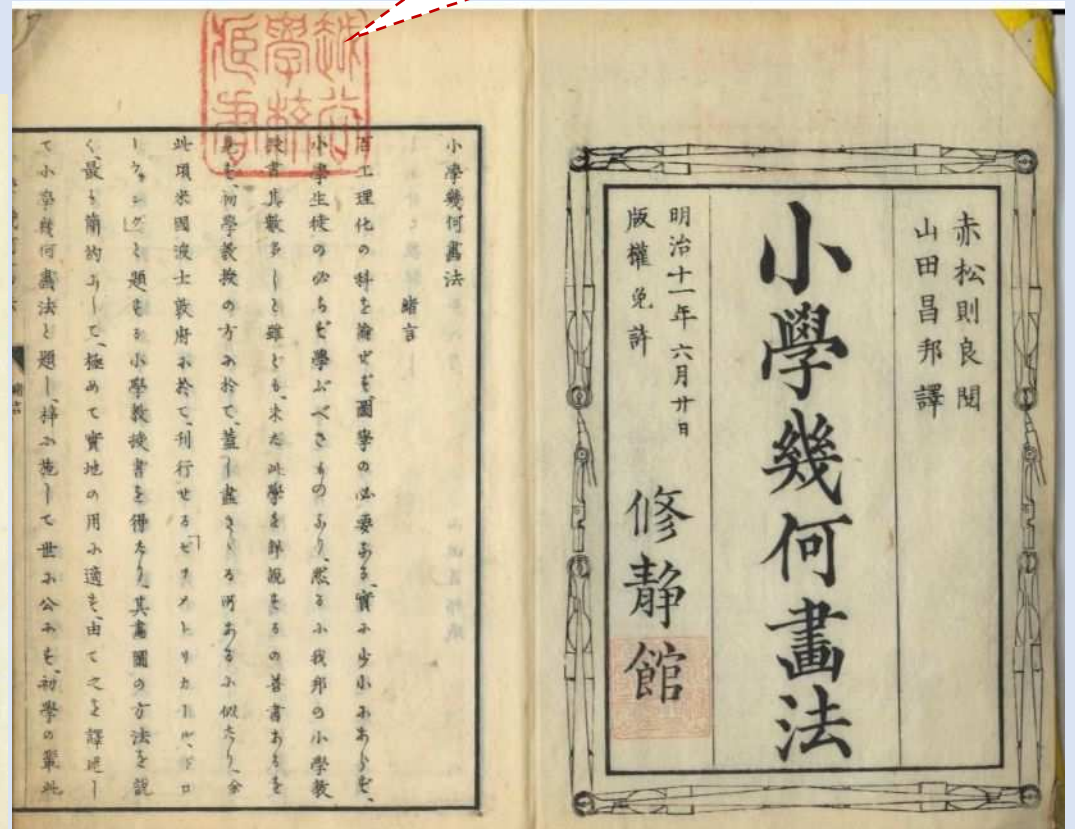 赤松則良閲
山田昌邦譯
小學幾何畫法
明治十一年六月廿日
版權免許
修静館
小學幾何畫法
緒言
百工理化の科を論ぜず、圖學の必要ある、實に少小にあらず、
小學生徒の必らず學ぶべきものなり、然るに我邦の小學教
授書其數多しと雖とも、未だ此學を詳説するの善書あるを
見ず、初學教授の方に於て、蓋し盡さゞる所あるに似たり、余
此頃米國波士敦府に於て、刊行せる「ゼオメトリカール、ドロ
と題する小學教授書を得たり、其畫圖の方法を説
く、最も簡約にして、極めて實地の用に適す、由て之を譯述し
て小學幾何畫法と題し、梓に施して世に公にす、初學の輩此
緒言